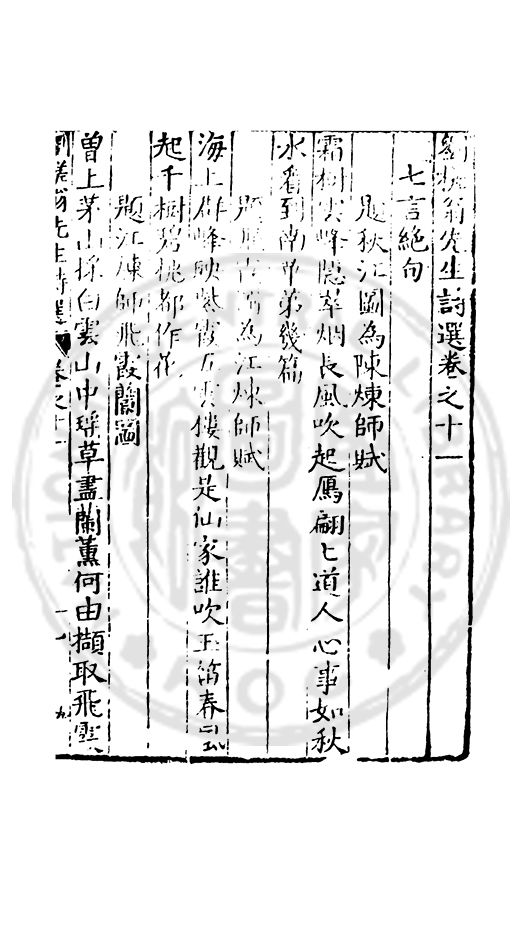 劉槎翁先生詩選卷之十一
七言絕句
題秋江圖為陳煉師賦
霜樹雲峰隱翠烟長風吹起鴈翩匕道人心事如秋
水看到南華第幾篇
題 為江煉師賦
海上群峰映紫霞五雲樓觀是仙家誰吹玉笛春
起千樹碧桃都作花
題江煉師飛霞閣圖
曽上茅山採白雲山中瑶草盡蘭薰何由擷取飛霞
劉槎翁先生詩選 卷之十一